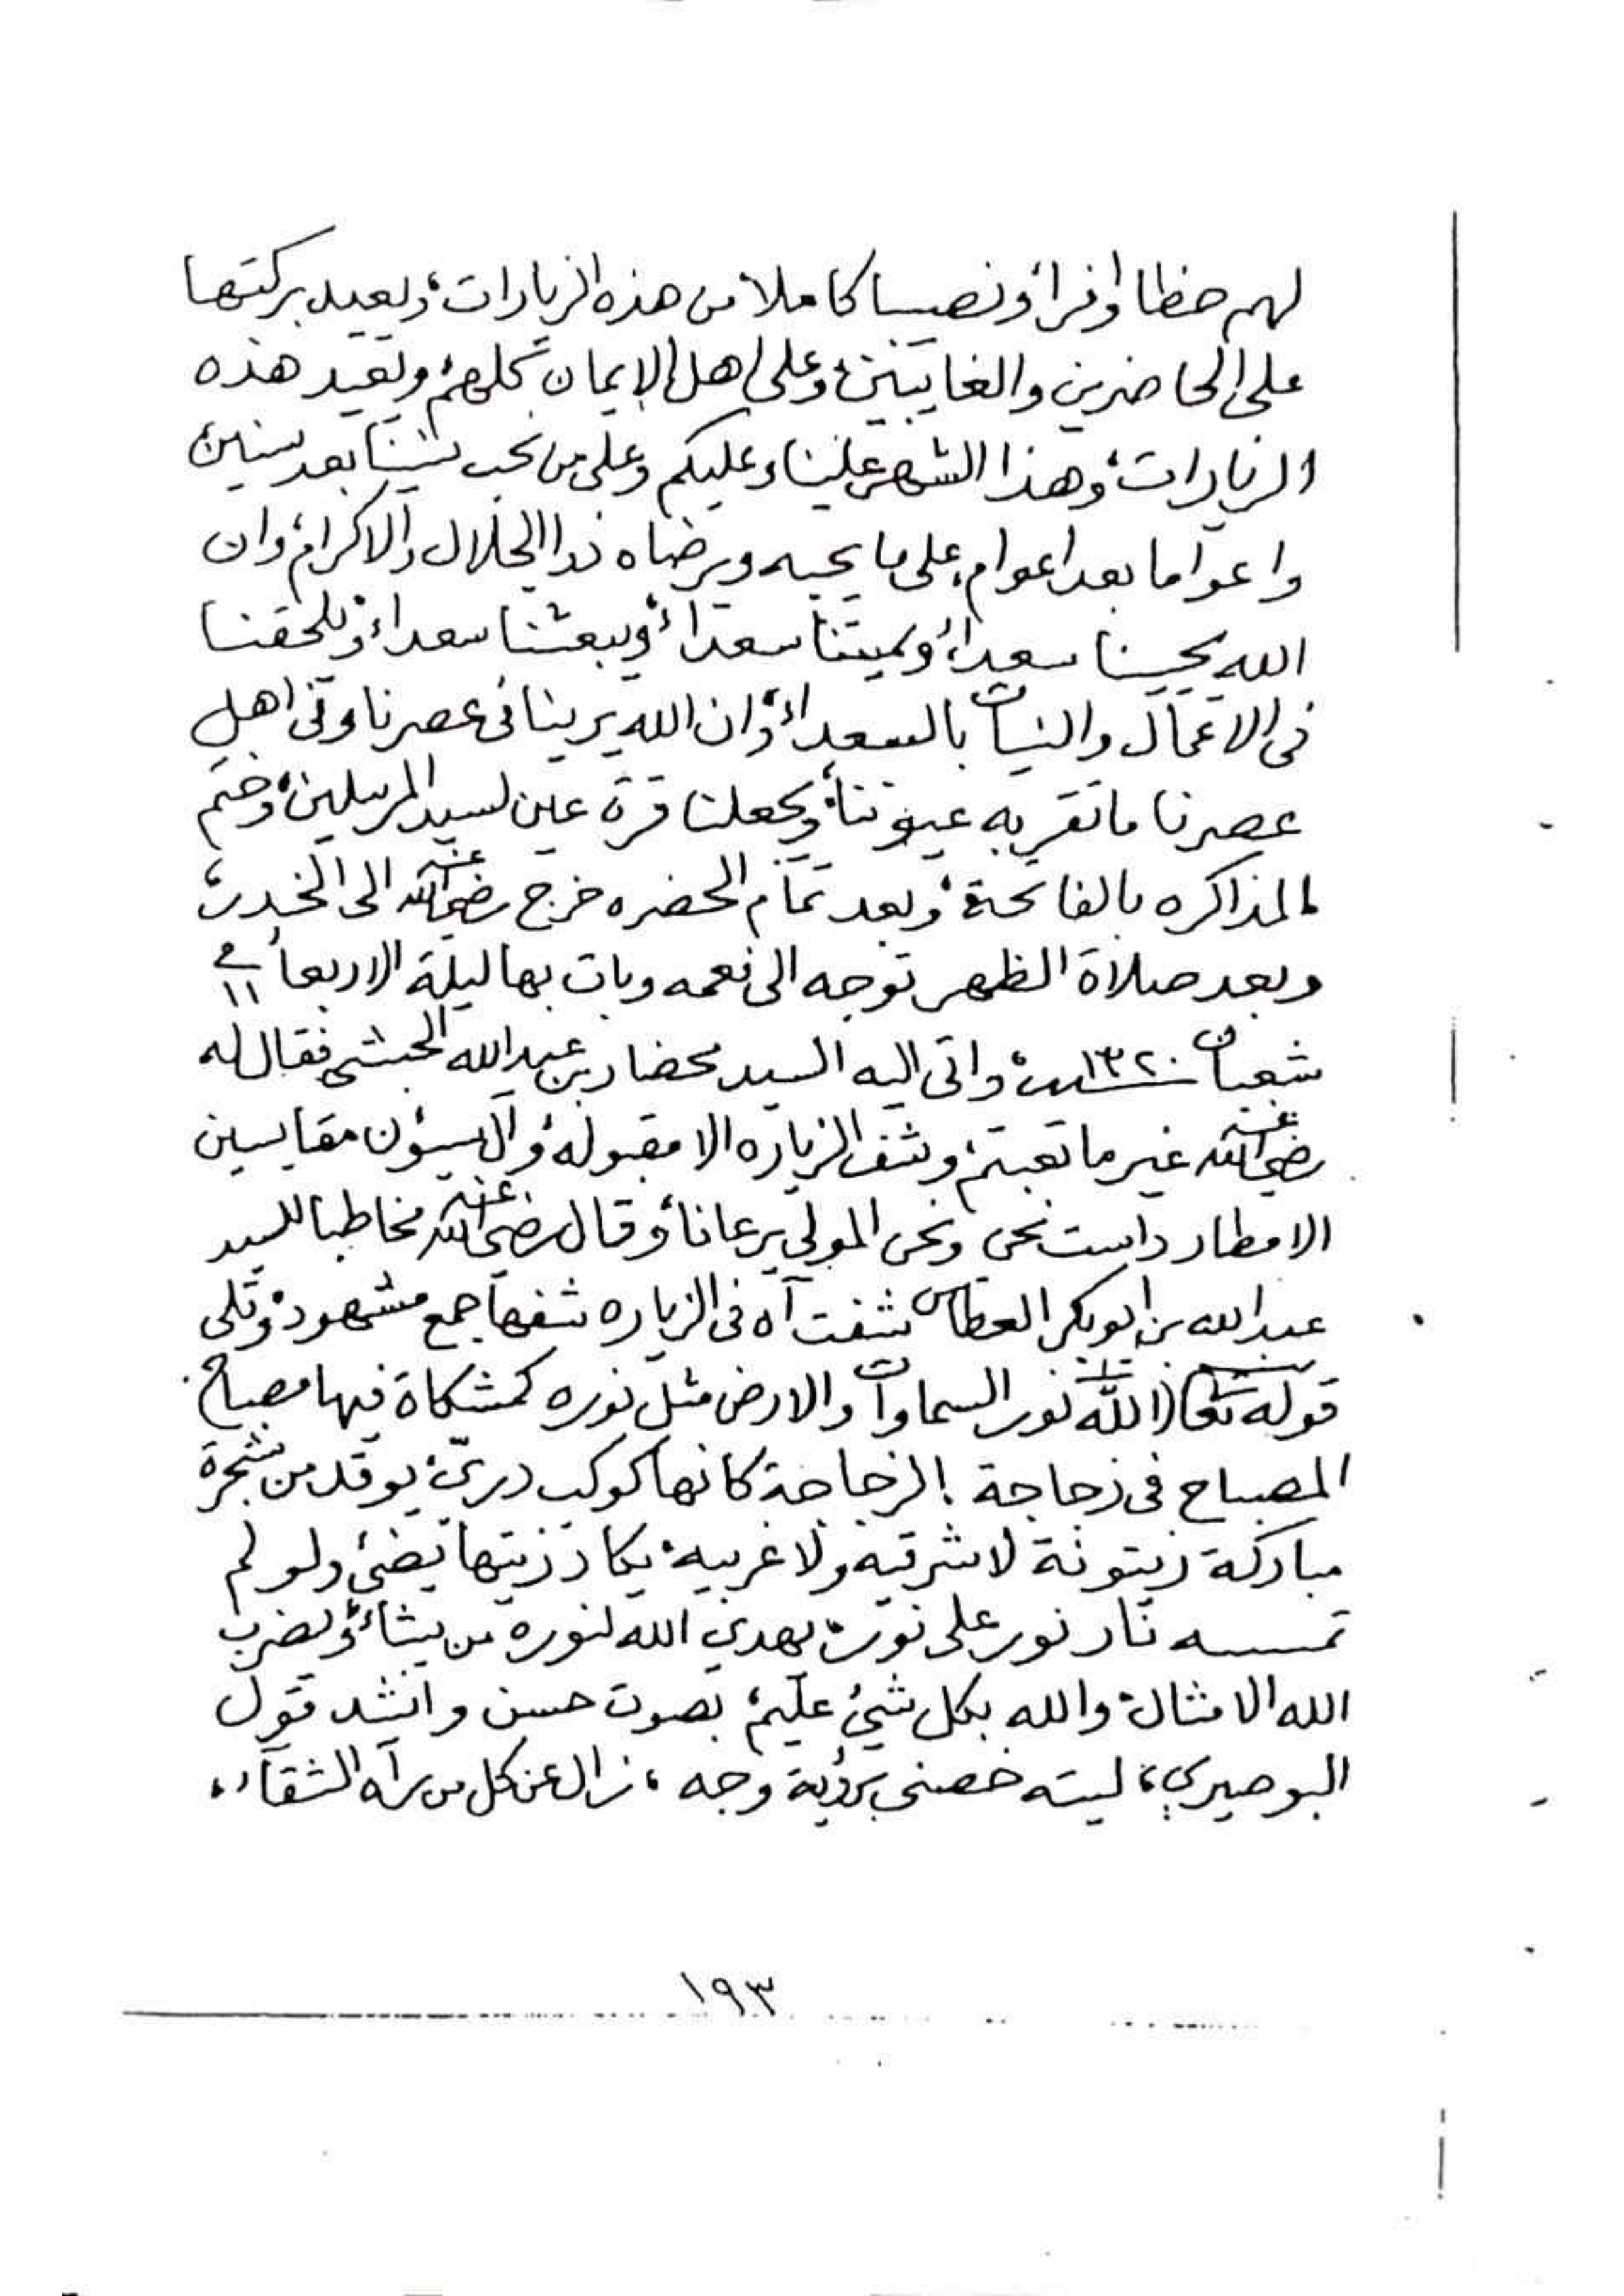 لهم حظا وافرا، ونصيبا كاملا من هذه الزيارات، ويعيد بركتها
على الحاضرين والغايبين، وعلى اهل الإيمان كلهم، ويعيد هذه
الزيارات، وهذا الشهر علينا وعليكم وعلى من نحب سنينا بعد سنين،
واعواما بعد اعوام، على ما يحبه ويرضاه ذوا الجلال والاكرام، وان
الله يحيينا سعداء، ويميتنا سعداء، ويبعثنا سعداء، ويلحقنا
في الاعمال والنيات بالسعداء، وان الله يرينا في عصرنا وفي اهل
عصرنا ما تقر به عيوننا، ويجعلنا قرة عين لسيد المرسلين، وختم
المذاكره بالفاتحة، وبعد تمام الحضره خرج رضي الله عنه الى الخدر،
وبعد صلاة الظهر توجه الى نعمه وبات بها ليلة الاربعاء ١١
شعبان سنة ١٣٢٠، واتى اليه السيد محضار بن عبدالله الحبشي فقال له
رضي الله عنه غير ما تعبتم، وشف الزياره الا مقبوله، وال سيؤن مقابسين
الامطار داست نحن ونحن المولى يرعانا، وقال رضي الله عنه مخاطبا للسيد
عبدالله بن ابوبكر العطاس شفت آه في الزياره شفها جمع مشهود، وتلى
قوله تعالى (الله نور السماوات والارض مثل نوره كمشكاة فيها مصباح
المصباح في زجاجة الزجاجة كانها كوكب دريّ، يوقد من شجرة
مباركة زيتونة لا شرقية ولا غربيه، يكاد زيتها يضئ ولو لم
تمسسه نار نور على نور، يهدي الله لنوره من يشاء، ويضرب
الله الامثال، والله بكل شئ عليم، بصوت حسن وانشد قول
البوصيري، ليته خصني برؤية وجه، زال عن كل من رآه الشقآء،
١٩٣